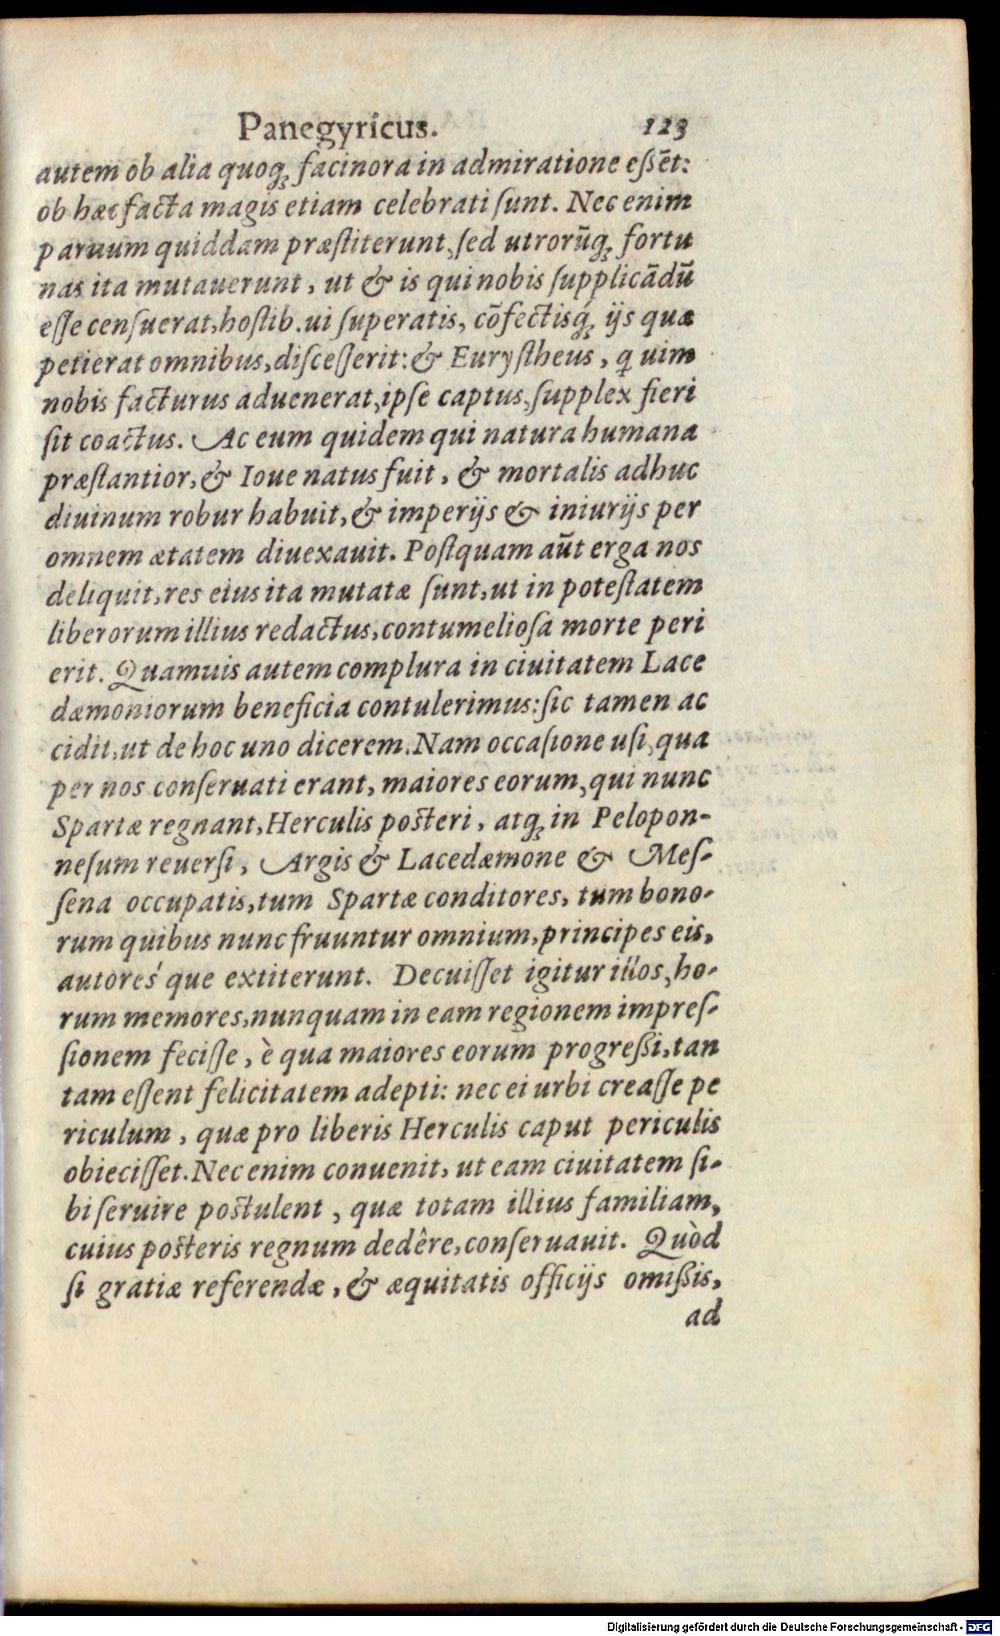 Panegyricus. 123
autem ob alia quoq; facinora in admiratione eſſēt:
ob hæc facta magis etiam celebrati ſunt. Nec enim
paruum quiddam præſtiterunt, ſed utrorūq; fortu
nas ita mutauerunt, ut & is qui nobis ſupplicādū
eſſe cenſuerat, hoſtib. ui ſuperatis, cōfectisq́; ijs quæ
petierat omnibus, diſceſſerit: & Euryſtheus, ꝗ uim
nobis facturus aduenerat, ipſe captus, ſupplex fieri
ſit coactus. Ac eum quidem qui natura humana
præſtantior, & Ioue natus fuit, & mortalis adhuc
diuinum robur habuit, & imperijs & iniurijs per
omnem ætatem diuexauit. Poſtquam aūt erga nos
deliquit, res eius ita mutatæ ſunt, ut in poteſtatem
liberorum illius redactus, contumelioſa morte peri
erit. Quamuis autem complura in ciuitatem Lace
dæmoniorum beneficia contulerimus: ſic tamen ac
cidit, ut de hoc uno dicerem. Nam occaſione uſi, qua
per nos conſeruati erant, maiores eorum, qui nunc
Spartæ regnant, Herculis poſteri, atq; in Pelopon-
neſum reuerſi, Argis & Lacedæmone & Meſ-
ſena occupatis, tum Spartæ conditores, tum bono-
rum quibus nunc fruuntur omnium, principes eis,
autores´que extiterunt. Decuiſſet igitur illos, ho-
rum memores, nunquam in eam regionem impreſ-
ſionem feciſſe, è qua maiores eorum progreßi, tan
tam eſſent felicitatem adepti: nec ei urbi creaſſe pe
riculum, quæ pro liberis Herculis caput periculis
obieciſſet. Nec enim conuenit, ut eam ciuitatem ſi-
bi ſeruire poſtulent, quæ totam illius familiam,
cuius poſteris regnum dedêre, conſeruauit. Quòd
ſi gratiæ referendæ, & æquitatis officijs omißis,
ad
Digitalisierung gefördert durch die Deutsche Forschungsgemeinschaft - DFG